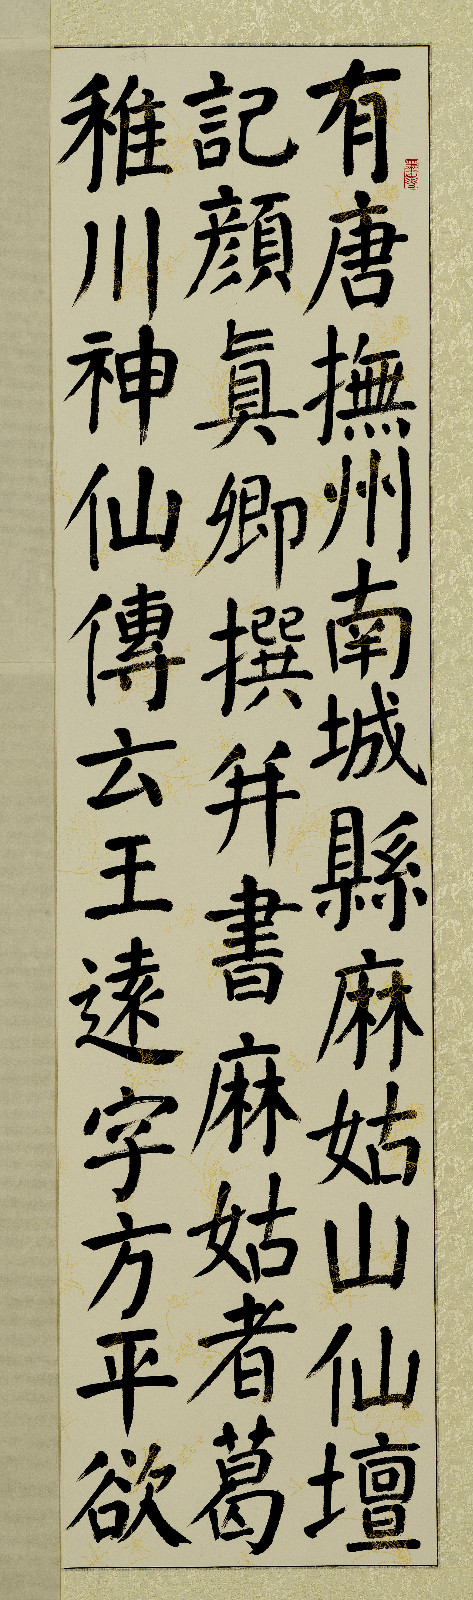 有唐撫州南城縣麻姑山仙壇
記顔真卿撰并書麻姑者葛
稚川神仙傳云王遠字方平欲